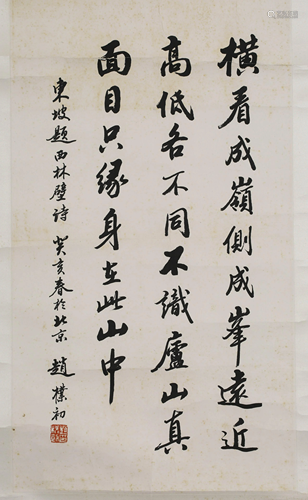 橫看成嶺側成峯遠近
高低各不同不識廬山真
面目只緣身在此山中
東坡題西林壁詩 癸亥春於北京 趙樸初